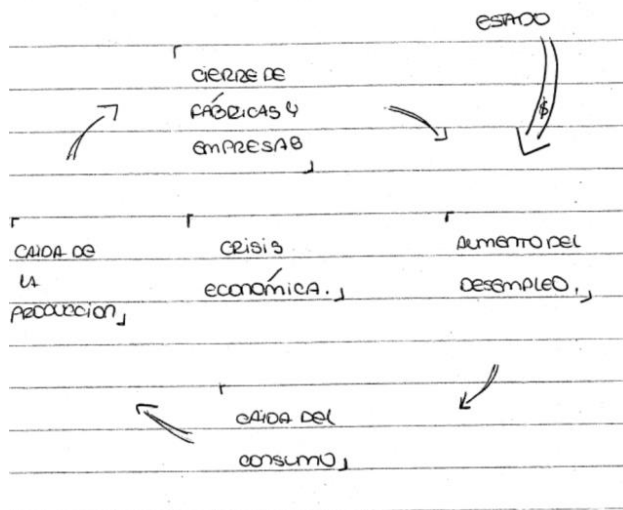 ESTADO
CIERRE DE
FÁBRICAS Y
EMPRESAS
$
CAIDA DE
LA
PRODUCCION
CRISIS
ECONÓMICA.
AUMENTO DEL
DESEMPLEO.
CAIDA DEL
CONSUMO